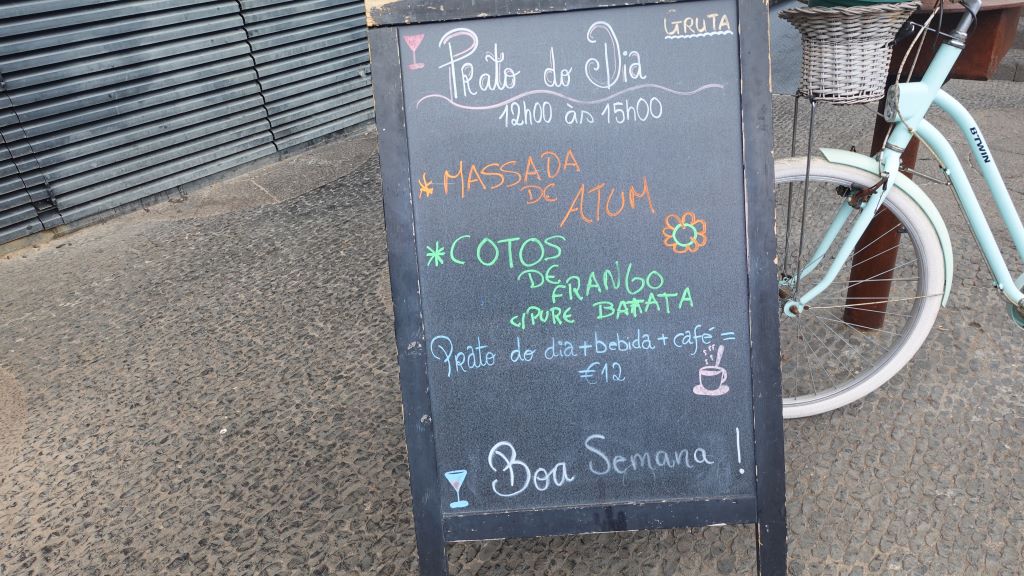 GRUTA
Prato do Dia
12h00 às 15h00
* MASSADA
DE
ATUM
* COTOS
DE
FRANGO
c/PURE BATATA
Prato do dia + bebida + café =
€12
Boa Semana !
B'TWIN